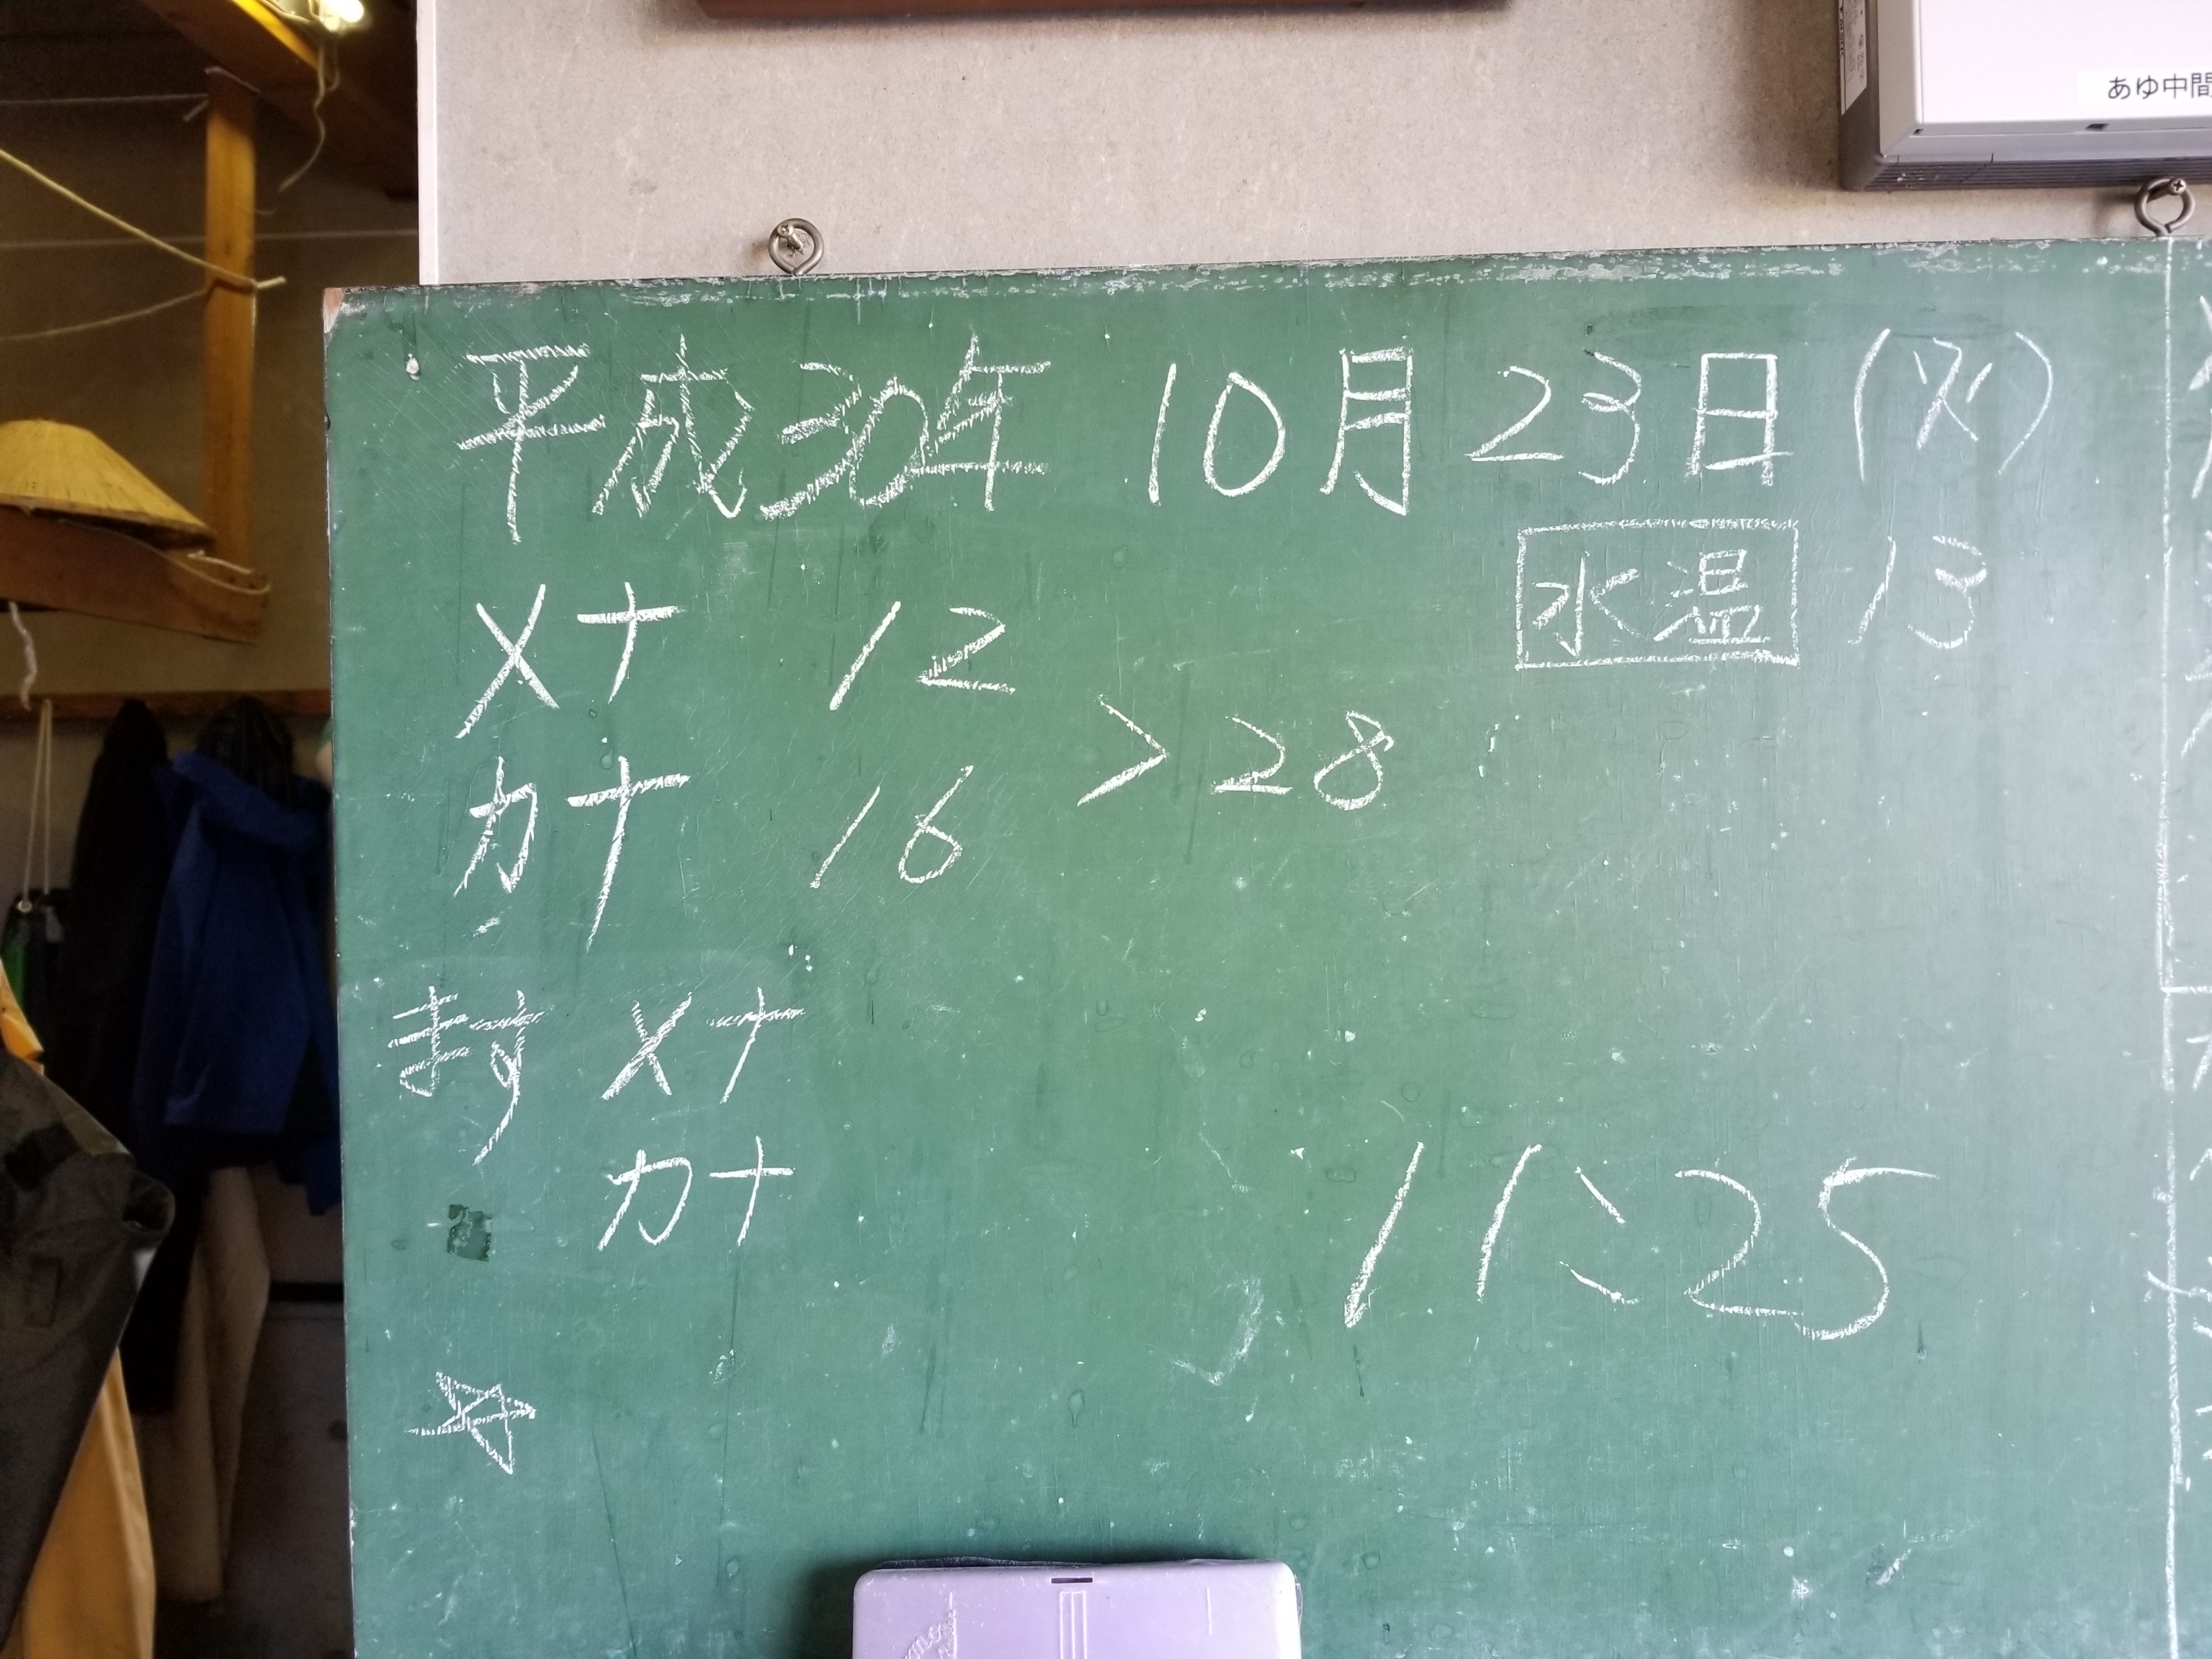 あゆ中間
平成30年 10月 23日 (火)
水温 13
メナ 12
> 28
カナ 16
ます メナ
カナ
11:25